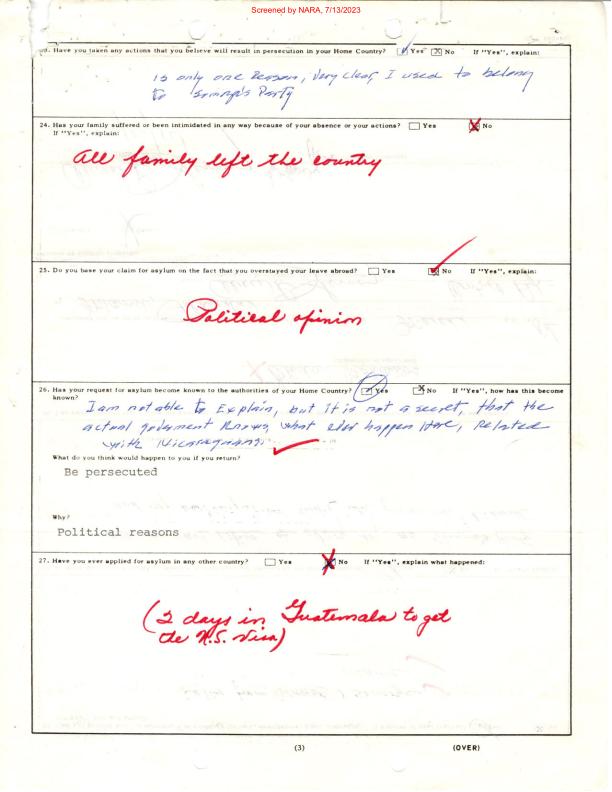 Screened by NARA, 7/13/2023
23. Have you taken any actions that you believe will result in persecution in your Home Country? Yes No If "Yes", explain:
is only one Reason, Very Clear, I used to belong
to Somoza's Party
24. Has your family suffered or been intimidated in any way because of your absence or your actions? Yes No
If "Yes", explain:
All family left the country
25. Do you base your claim for asylum on the fact that you overstayed your leave abroad? Yes No If "Yes", explain:
Political opinion
26. Has your request for asylum become known to the authorities of your Home Country? Yes No If "Yes", how has this become
known?
I am not able to Explain, but it is not a secret, that the
actual goverment Knows, what ever happen Here, Related
with Nicaraguans.
What do you think would happen to you if you return?
Be persecuted
Why?
Political reasons
27. Have you ever applied for asylum in any other country? Yes No If "Yes", explain what happened:
(2 days in Guatemala to get
the U.S. visa)
(3) (OVER)